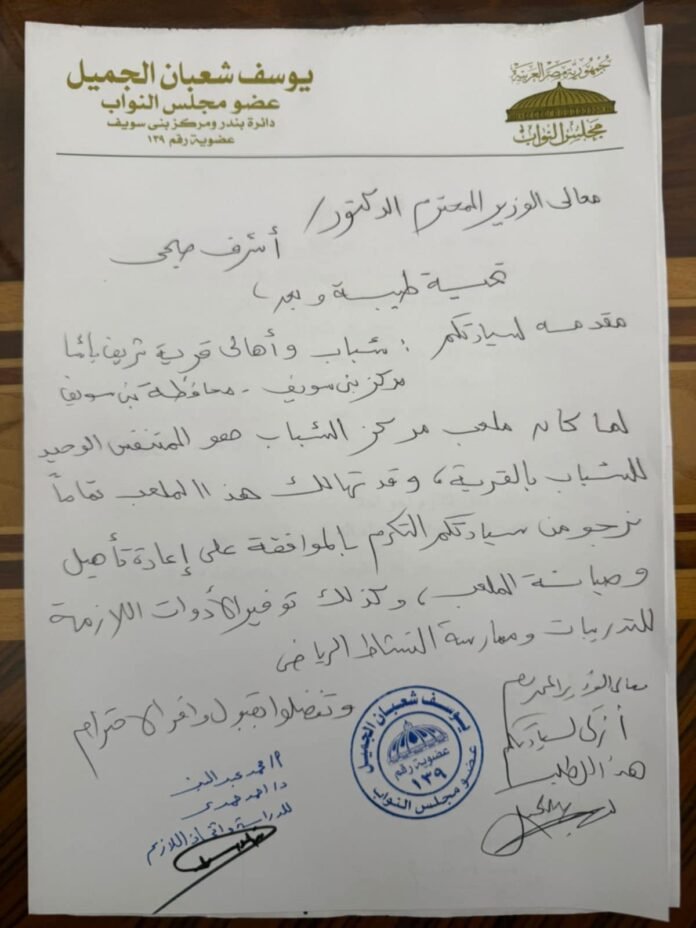 يوسف شعبان الجميل
عضو مجلس النواب
دائرة بندر ومركز بنى سويف
عضوية رقم ١٣٩
جمهورية مصر العربية
مجلس النواب
معالى الوزير المحترم الدكتور /
أشرف صبحى
تحية طيبة و بعد ،
مقدمه لسيادتكم : شباب و أهالى قرية شريف باشا
مركز بنى سويف - محافظة بنى سويف
لما كان ملعب مركز الشباب هو المتنفس الوحيد
للشباب بالقرية ، وقد تهالك هذا الملعب تماماً
نرجو من سيادتكم التكرم بالموافقة على إعادة تأهيل
وصيانة الملعب ، وكذلك توفير الأدوات اللازمة
للتدريبات وممارسة النشاط الرياضى
وتفضلوا بقبول وافر الاحترام
معالى الوزير المحترم
أزكى لسيادتكم
هذا الطلب
يوسف شعبان الجميل
عضوية رقم
١٣٩
عضو مجلس النواب
د/ احمد حمدى
للدراسة واتخاذ اللازم